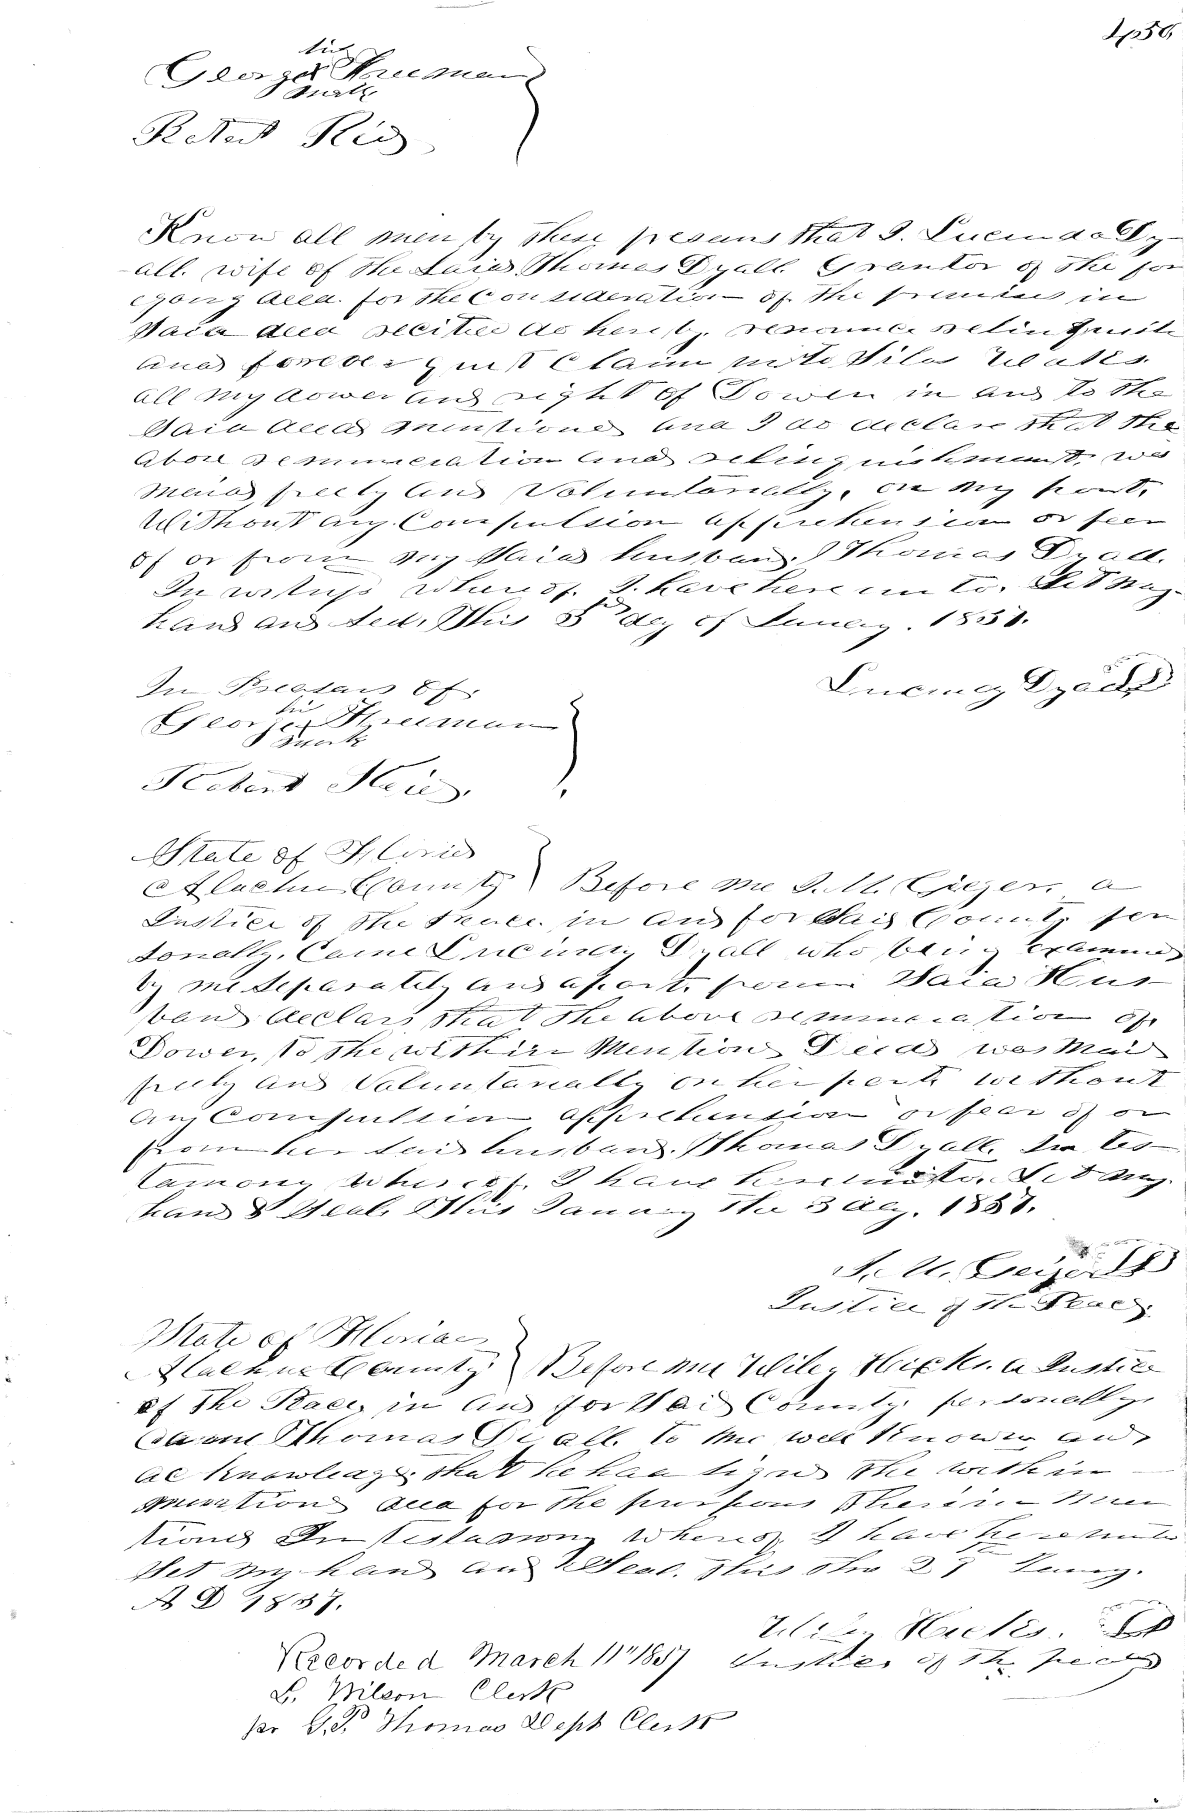 450.
his
George X Freeman
mark
Robert Reid
Know all men by these presens that I. Lucinda Dy-
all. wife of the Said Thomas Dyall. Grantor of the for
egoing deed. for the Consideration of. the premises in
Said deed recited do hereby. renounce relinquish
and forever quit Claim unto Silas Weaks.
all my dower and right of Dower in and to the
Said deed mentioned and I do declare that the
above renunciation and relinquishment. was
maid freely and Voluntarially. on my part.
Without any Compulsion apprehension or fear
of or from my Said husband. Thomas Dyall.
In witness whereof. I have here un to. Set my-
hand and Seal. This 3rd day of January. 1857.
In Presans of.
his
George X Freeman
mark
Lucinday Dyall LS
Robert Reid.
State of Florida
Alachua County Before me A. M. Geiger. a
Justice of the Peace. in and for Said County per
sonally. Came Lucinday Dyall who being examined
by me Separately and apart. from Said Hus-
band declars that the above renunciation of.
Dower. to the within Mentioned Deed was Maid
freely and Voluntarially on her part. without
any Compultion apprehension or fear of or
from her Said husband. Thomas Dyall. In tes-
tamony whereof. I have hereunto. Set my.
hand & Seal. This January the 3 day. 1857.
A. M. Geiger LS
Justice of the Peace.
State of Florida
Alachua County. Before me Wiley Hicks. a Justice
of the Peace. in and for Said County. personally.
Came Thomas Dyall. to me well Known and
acknowledge. that he had signed the within
mentioned deed for the purpous therein Men
tioned In testamony whereof I have hereunto
Set my hand and Seal. This the 27th January.
A D 1857.
Wiley Hicks. LS
Justice of the peace
Recorded March 11" 1857
L. Wilson Clerk
per G. P. Thomas Dept Clerk